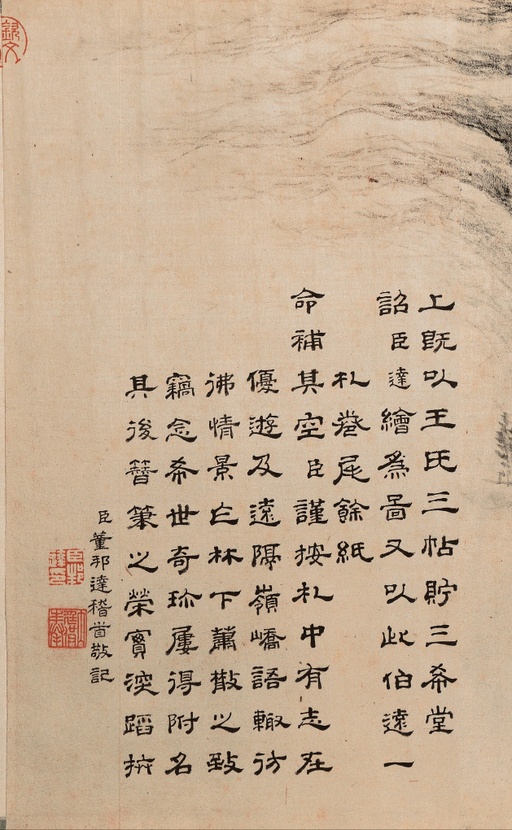 上既以王氏三帖貯三希堂
詔臣達繪為啚又以此伯遠一
札卷尾餘紙
命補其空臣謹按札中有志在
優遊及遠隔嶺嶠語輒彷
彿情景乍林下蕭散之致
竊念希世奇珍屢得附名
其後簪筆之榮實深蹈抃
臣董邦達稽首敬記